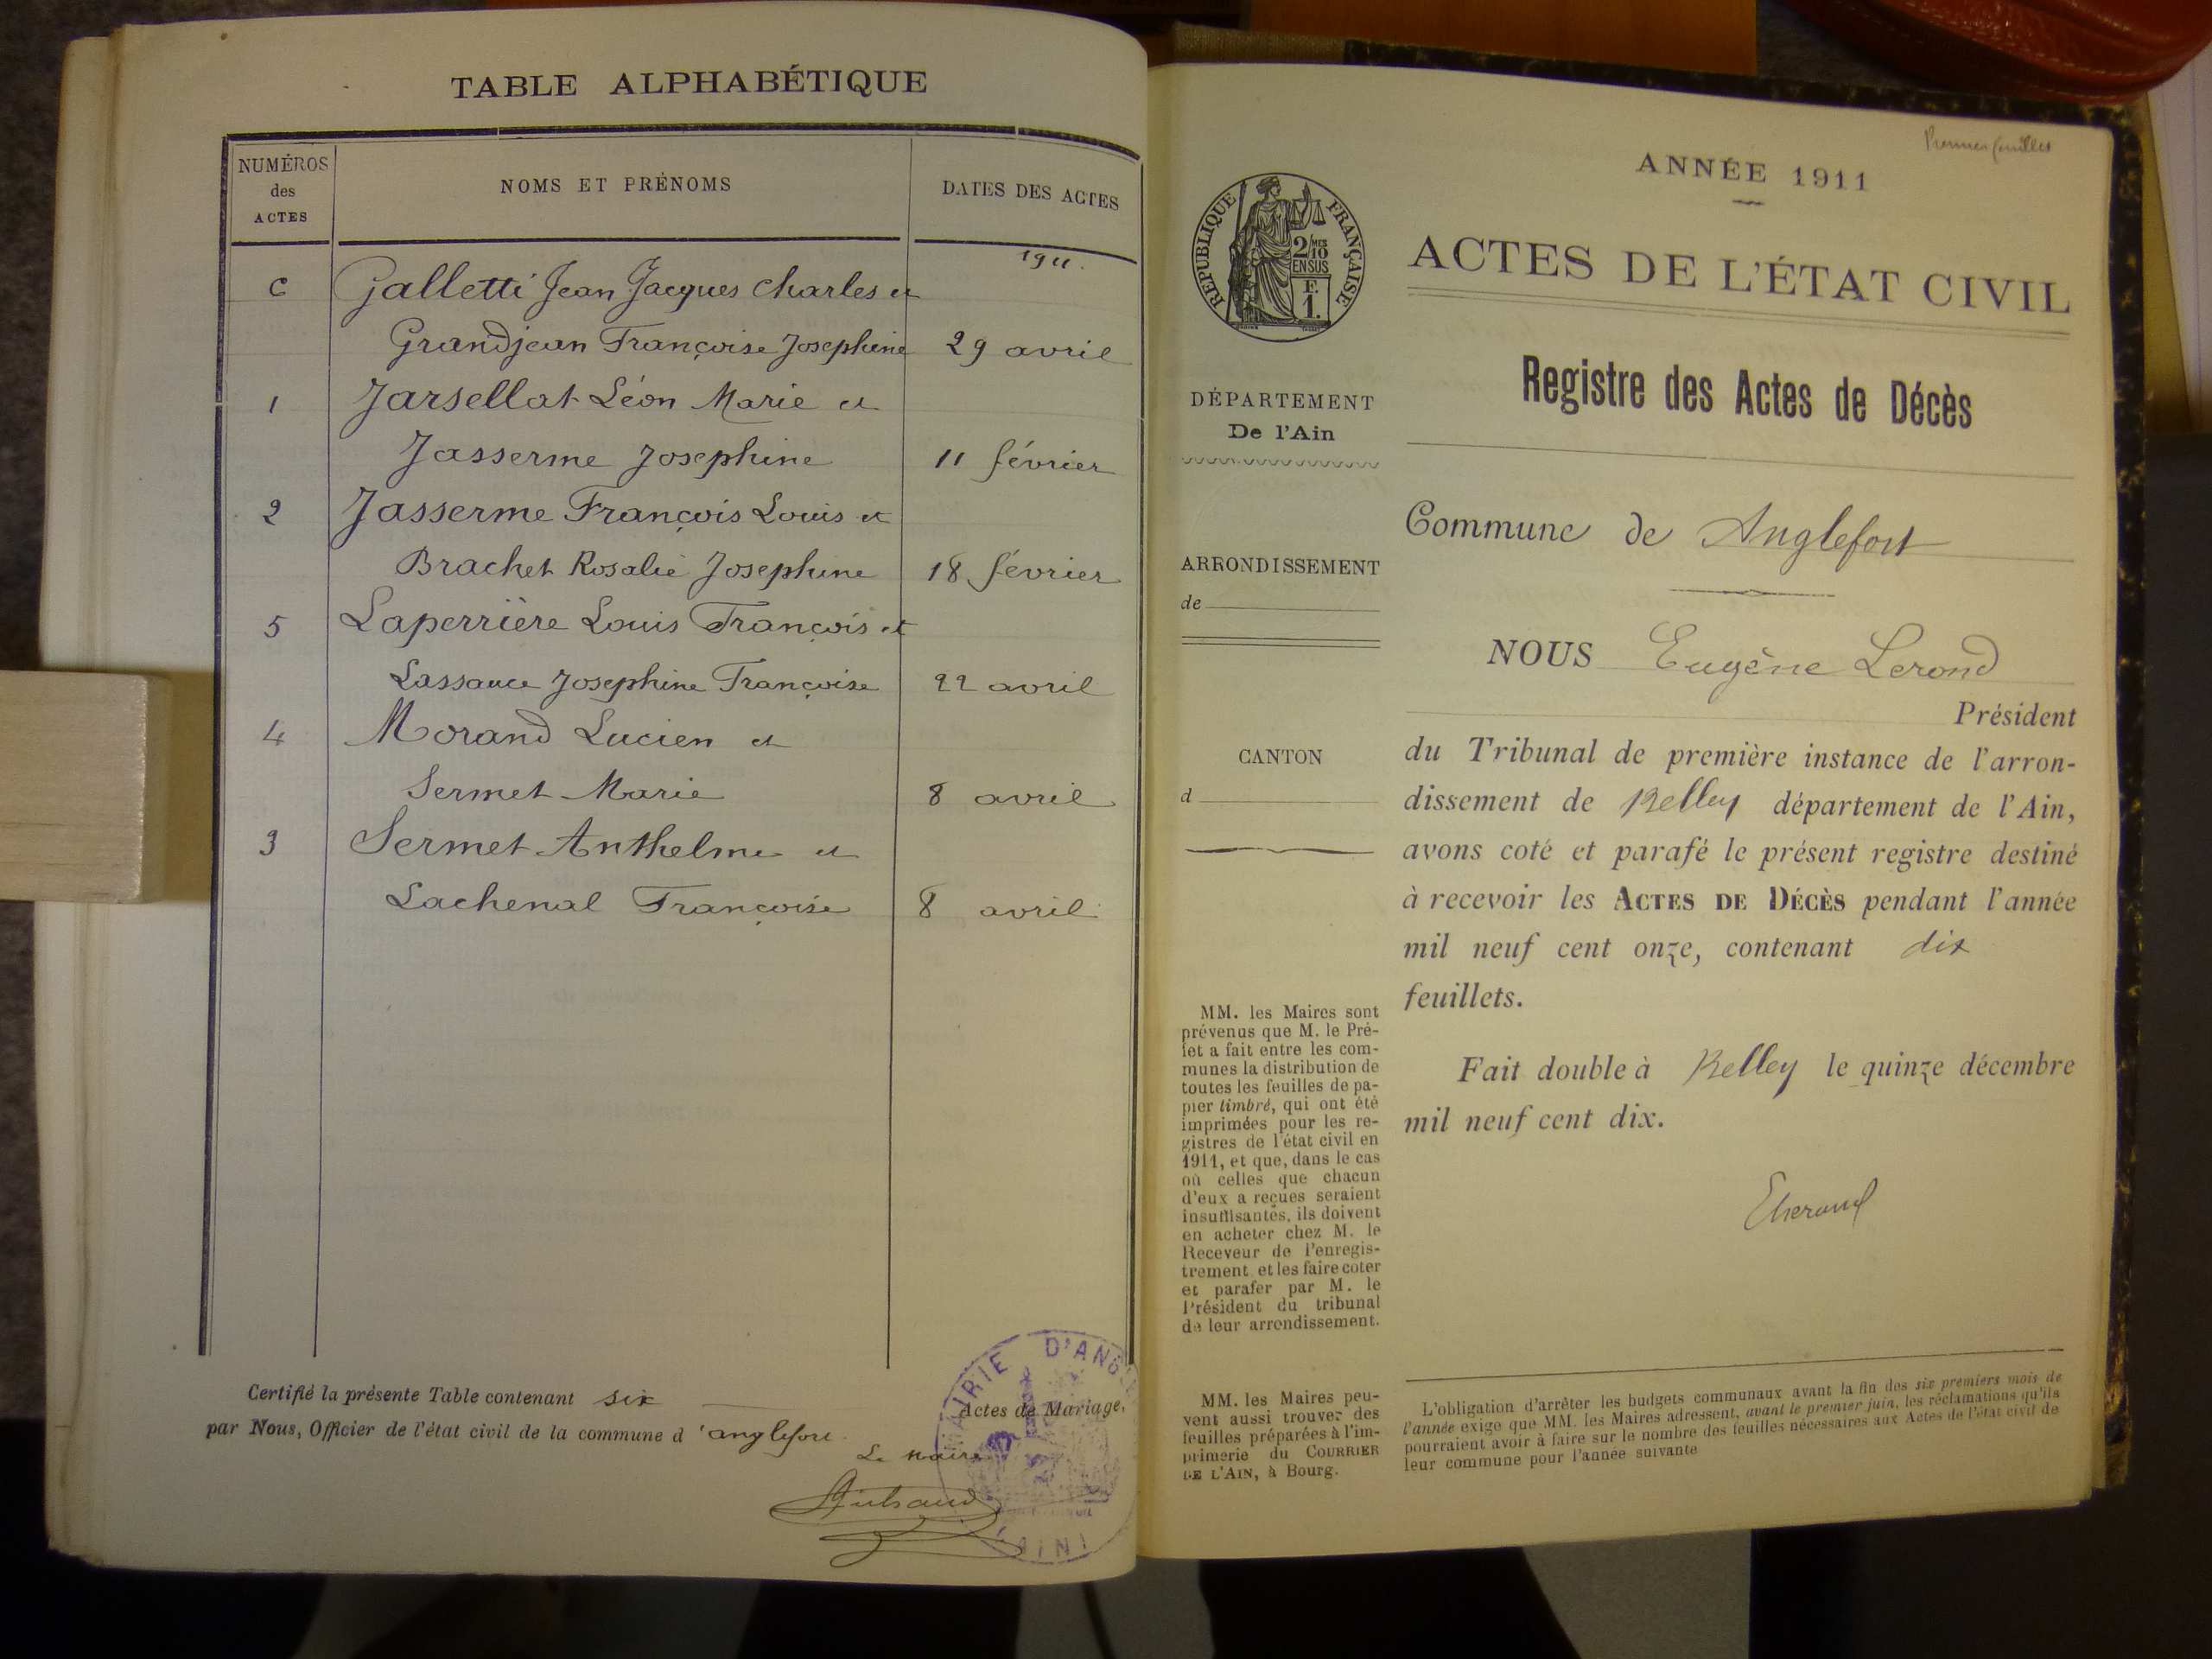 TABLE ALPHABÉTIQUE
NUMÉROS
des
ACTES
NOMS ET PRÉNOMS
DATES DES ACTES
1911.
6 Galletti Jean Jacques Charles et
Grandjean Françoise Josephine 29 avril
1 Jarsellat Léon Marie et
Jasserme Josephine 11 février
2 Jasserme François Louis et
Brachet Rosalie Josephine 18 février
5 Laperrière Louis François et
Lassauce Josephine Françoise 22 avril
4 Morand Lucien et
Sermet Marie 8 avril
3 Sermet Anthelme et
Lachenal Françoise 8 avril
Certifié la présente Table contenant six Actes de Mariage,
par Nous, Officier de l'état civil de la commune d'anglefort
Le maire
MAIRIE D'ANG
(AIN)
Premier feuillet
ANNÉE 1911
RÉPUBLIQUE FRANÇAISE
2/10 MES
EN SUS
F.
1.
ACTES DE L'ÉTAT CIVIL
Registre des Actes de Décès
DÉPARTEMENT
De l'Ain
ARRONDISSEMENT
de
CANTON
d
Commune de Anglefort
NOUS Eugène Lerond
Président
du Tribunal de première instance de l'arron-
dissement de Belley département de l'Ain,
avons coté et parafé le présent registre destiné
à recevoir les ACTES DE DÉCÈS pendant l'année
mil neuf cent onze, contenant dix
feuillets.
Fait double à Belley le quinze décembre
mil neuf cent dix.
MM. les Maires sont
prévenus que M. le Pré-
fet a fait entre les com-
munes la distribution de
toutes les feuilles de pa-
pier timbré, qui ont été
imprimées pour les re-
gistres de l'état civil en
1911, et que, dans le cas
où celles que chacun
d'eux a reçues seraient
insuffisantes, ils doivent
en acheter chez M. le
Receveur de l'enregis-
trement et les faire coter
et parafer par M. le
Président du tribunal
de leur arrondissement.
MM. les Maires peu-
vent aussi trouver des
feuilles préparées à l'im-
primerie du COURRIER
DE L'AIN, à Bourg.
L'obligation d'arrêter les budgets communaux avant la fin des six premiers mois de
l'année exige que MM. les Maires adressent, avant le premier juin, les réclamations qu'ils
pourraient avoir à faire sur le nombre des feuilles nécessaires aux Actes de l'état civil de
leur commune pour l'année suivante